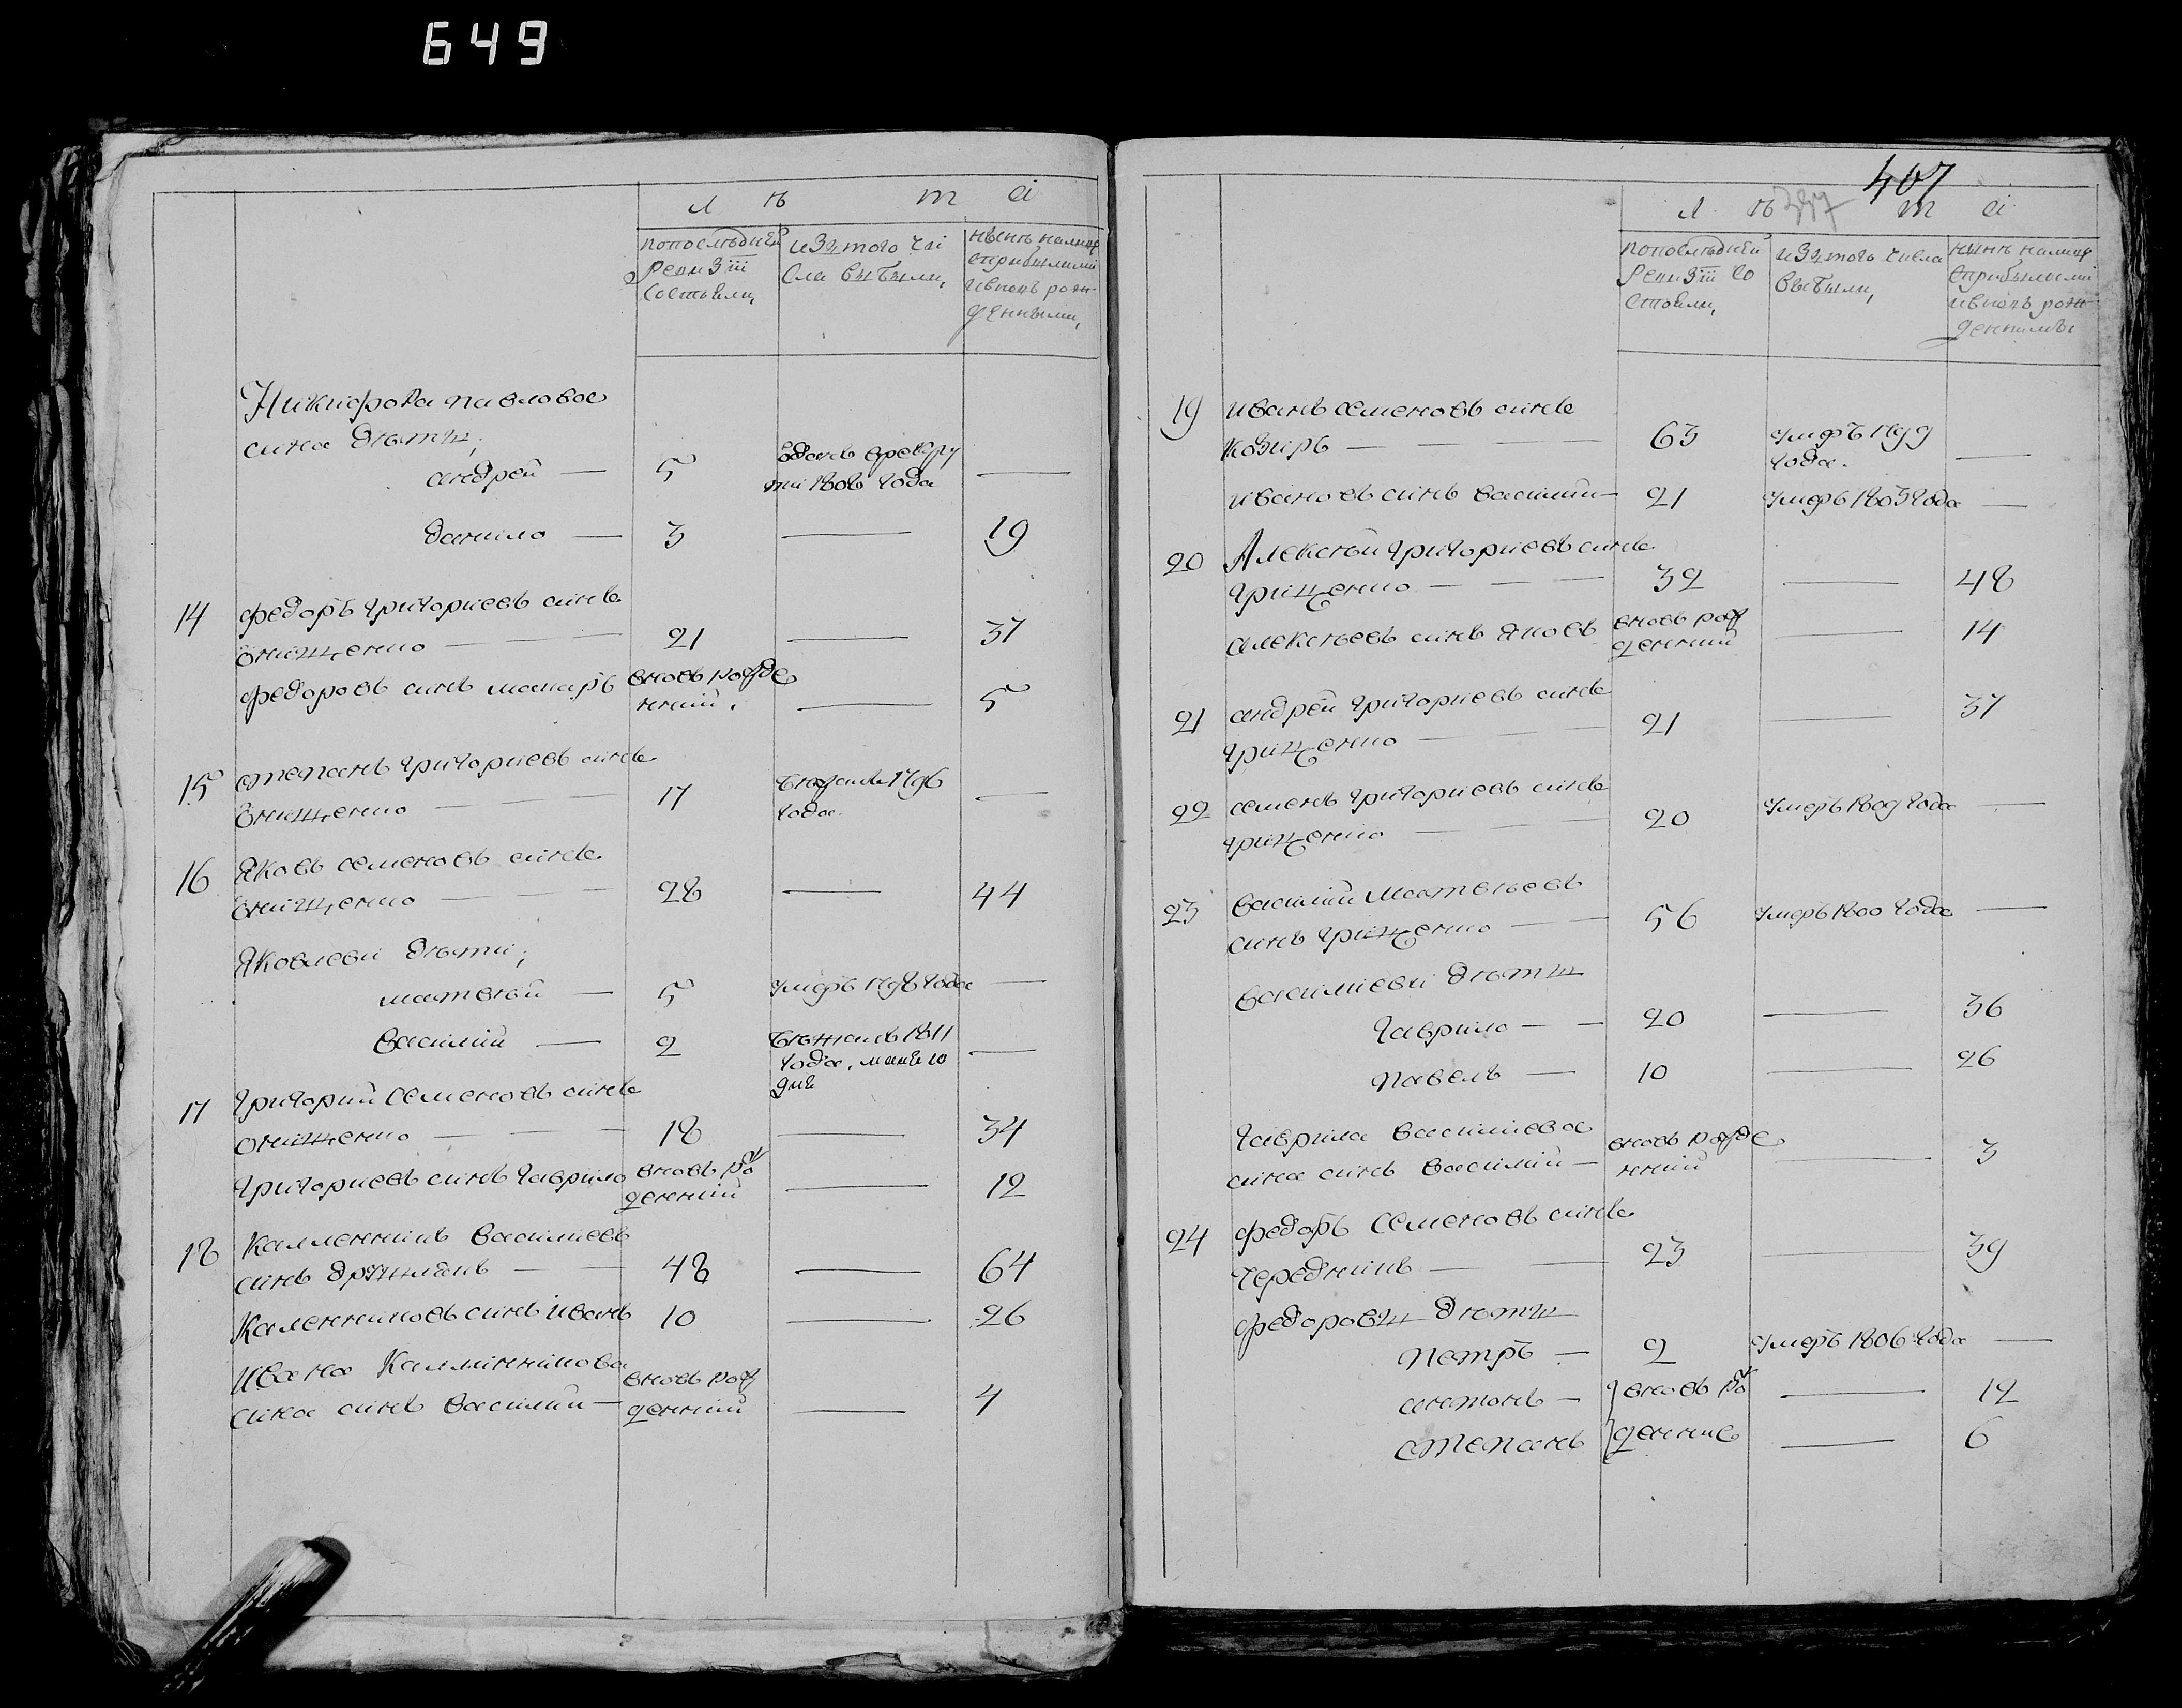 649
л ѣ т а
попослѣдней
ревизіи
состояли,
изътого чи
сла выбыли,
нынѣ налицо
сприбылыми
ивновь рож
денными,
Никифора павлова
сина дѣти;
андрей — 5 отданъ врекру
ти 1806 года —
данило — 3 — 19
14 федоръ григориевъ синъ
онищенко — 21 — 37
федоровъ синъ макаръ вновь рожде
нний. — 5
15 степанъ григориевъ синъ
онищенко — 17 1796
года. —
16 Яковъ семеновъ синъ
онищенко — 28 — 44
Яковлеви дѣти;
матвѣй — 5 умеръ 1798 года —
василий — 2 1811
года, —
17 григорий семеновъ синъ
онищенко — 18 — 34
григориевъ синъ гаврило вновь ро
жденний — 12
18 Калленникъ василиевъ
синъ — 48 — 64
Каленниковъ синъ иванъ 10 — 26
ивана Каллинникова
сина синъ василий — вновь рож
денний — 4
407
397
л ѣ т а
попослѣдней
ревизіи со
стояли,
изътого числа
выбыли,
нынѣ налицо
сприбылыми
ивновь рож
денными
19 иванъ семеновъ синъ
козиръ — 63 умеръ 1799
года. —
ивановъ синъ василий — 21 умеръ 1805 года —
20 Алексѣй григориевъ синъ
грищенко — 32 — 48
алексѣевъ синъ яковъ вновь рож
денний — 14
21 андрей григориевъ синъ
грищенко — 21 — 37
22 семенъ григориевъ синъ
грищенко — 20 умеръ 1809 года —
23 василий матвѣевъ
синъ грищенко — 56 умеръ 1800 года —
василиеви дѣти
гаврило — 20 — 36
павелъ — 10 — 26
гаврила василиева
сина синъ василий — вновь рожде
нний — 3
24 федоръ семеновъ синъ
чередникъ — 23 — 39
федорови дѣти
петръ — 2 умеръ 1806 года —
антонъ — вновь ро — 12
степанъ жденние — 6